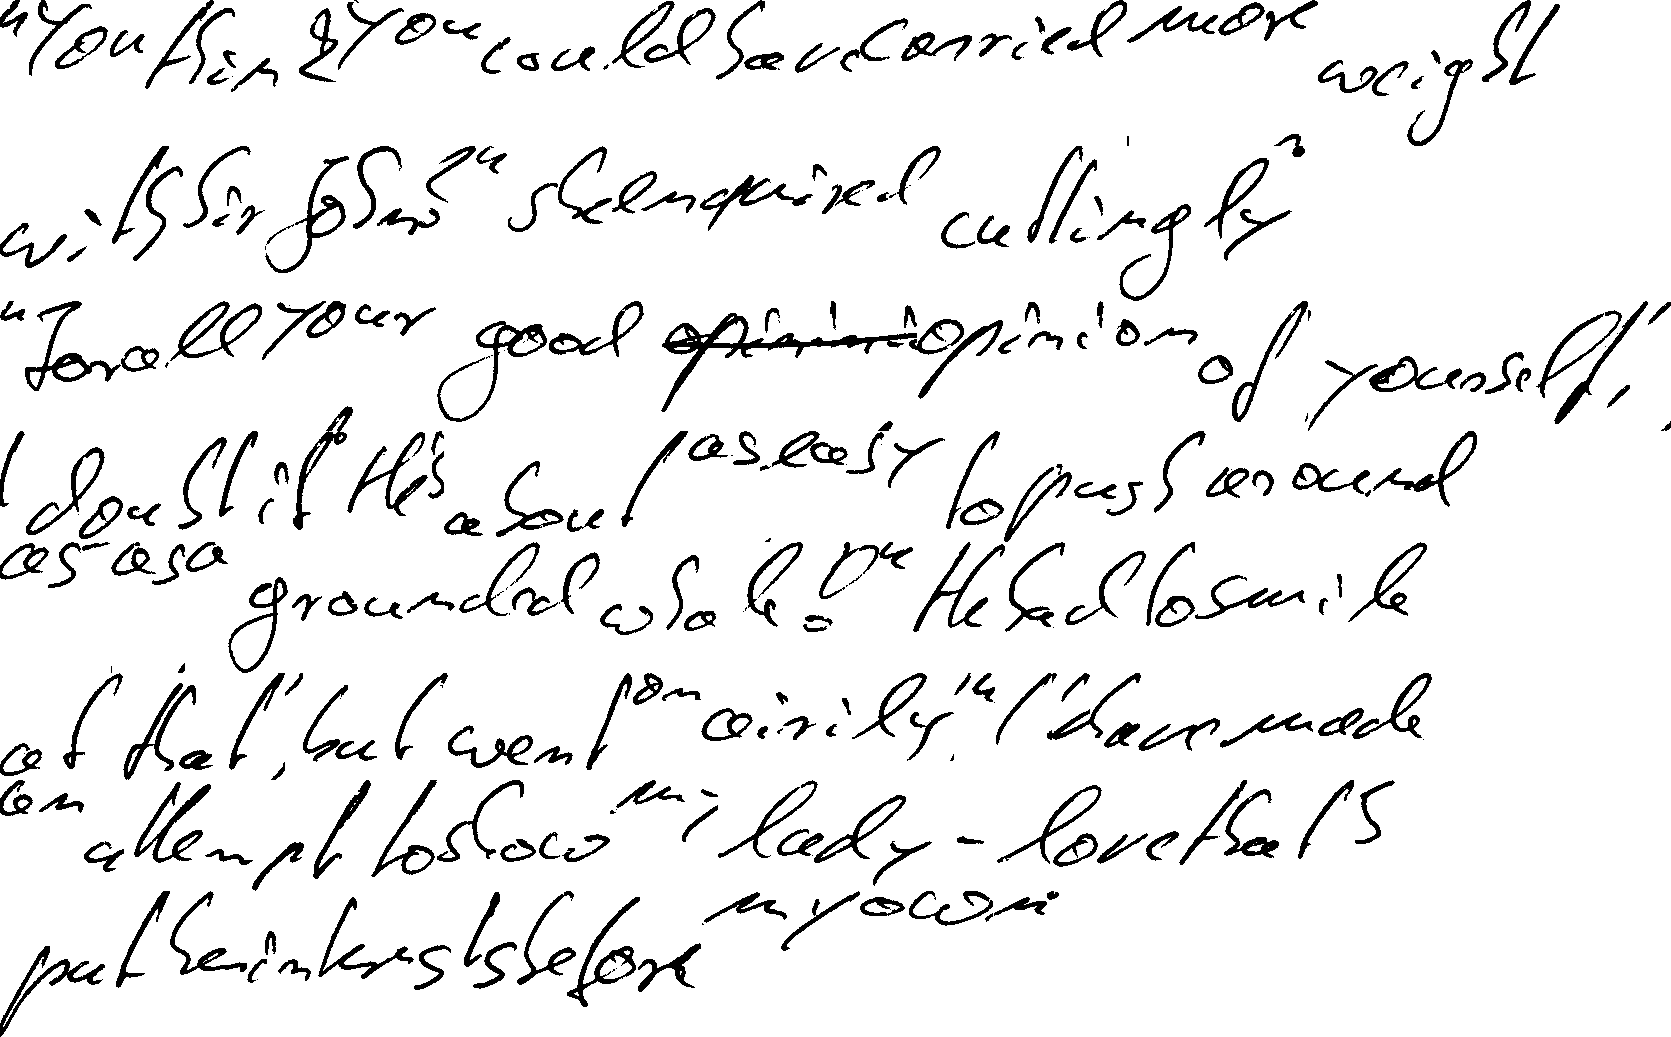 "You think you could have carried more weight
with Sir John?" she enquired cuttingly.
"For all your good opinion of yourself,
I doubt it. He's about as easy to push around
as a grounded whale!" He had to smile
at that, but went on airily, "I have made
an attempt to show my lady-love that I
put her interests before my own